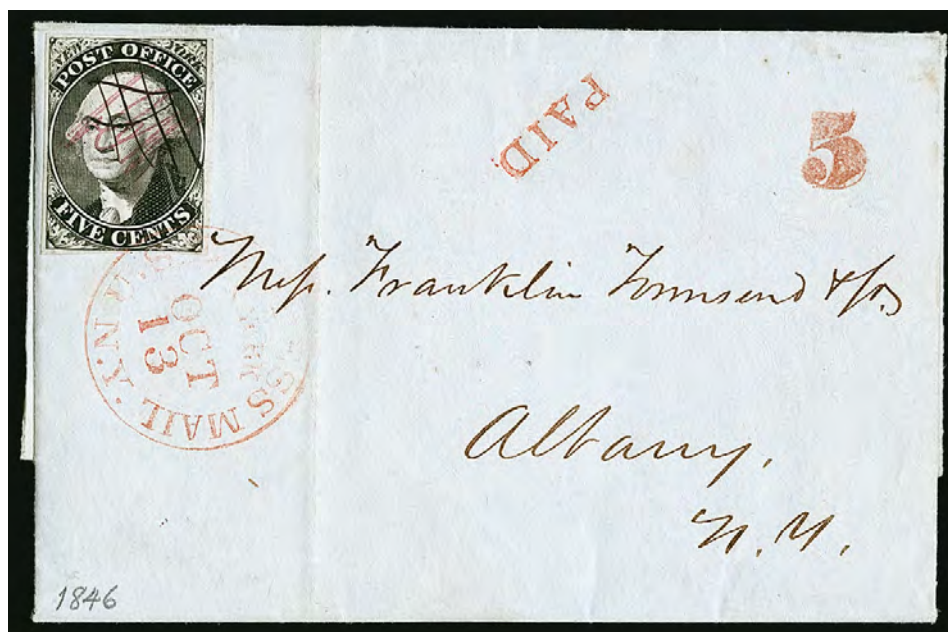 POST OFFICE
FIVE CENTS
PAID
5
MAIL · N.Y.
OCT
13
Mess. Franklin Townsend & Co
Albany,
N. Y.
1846